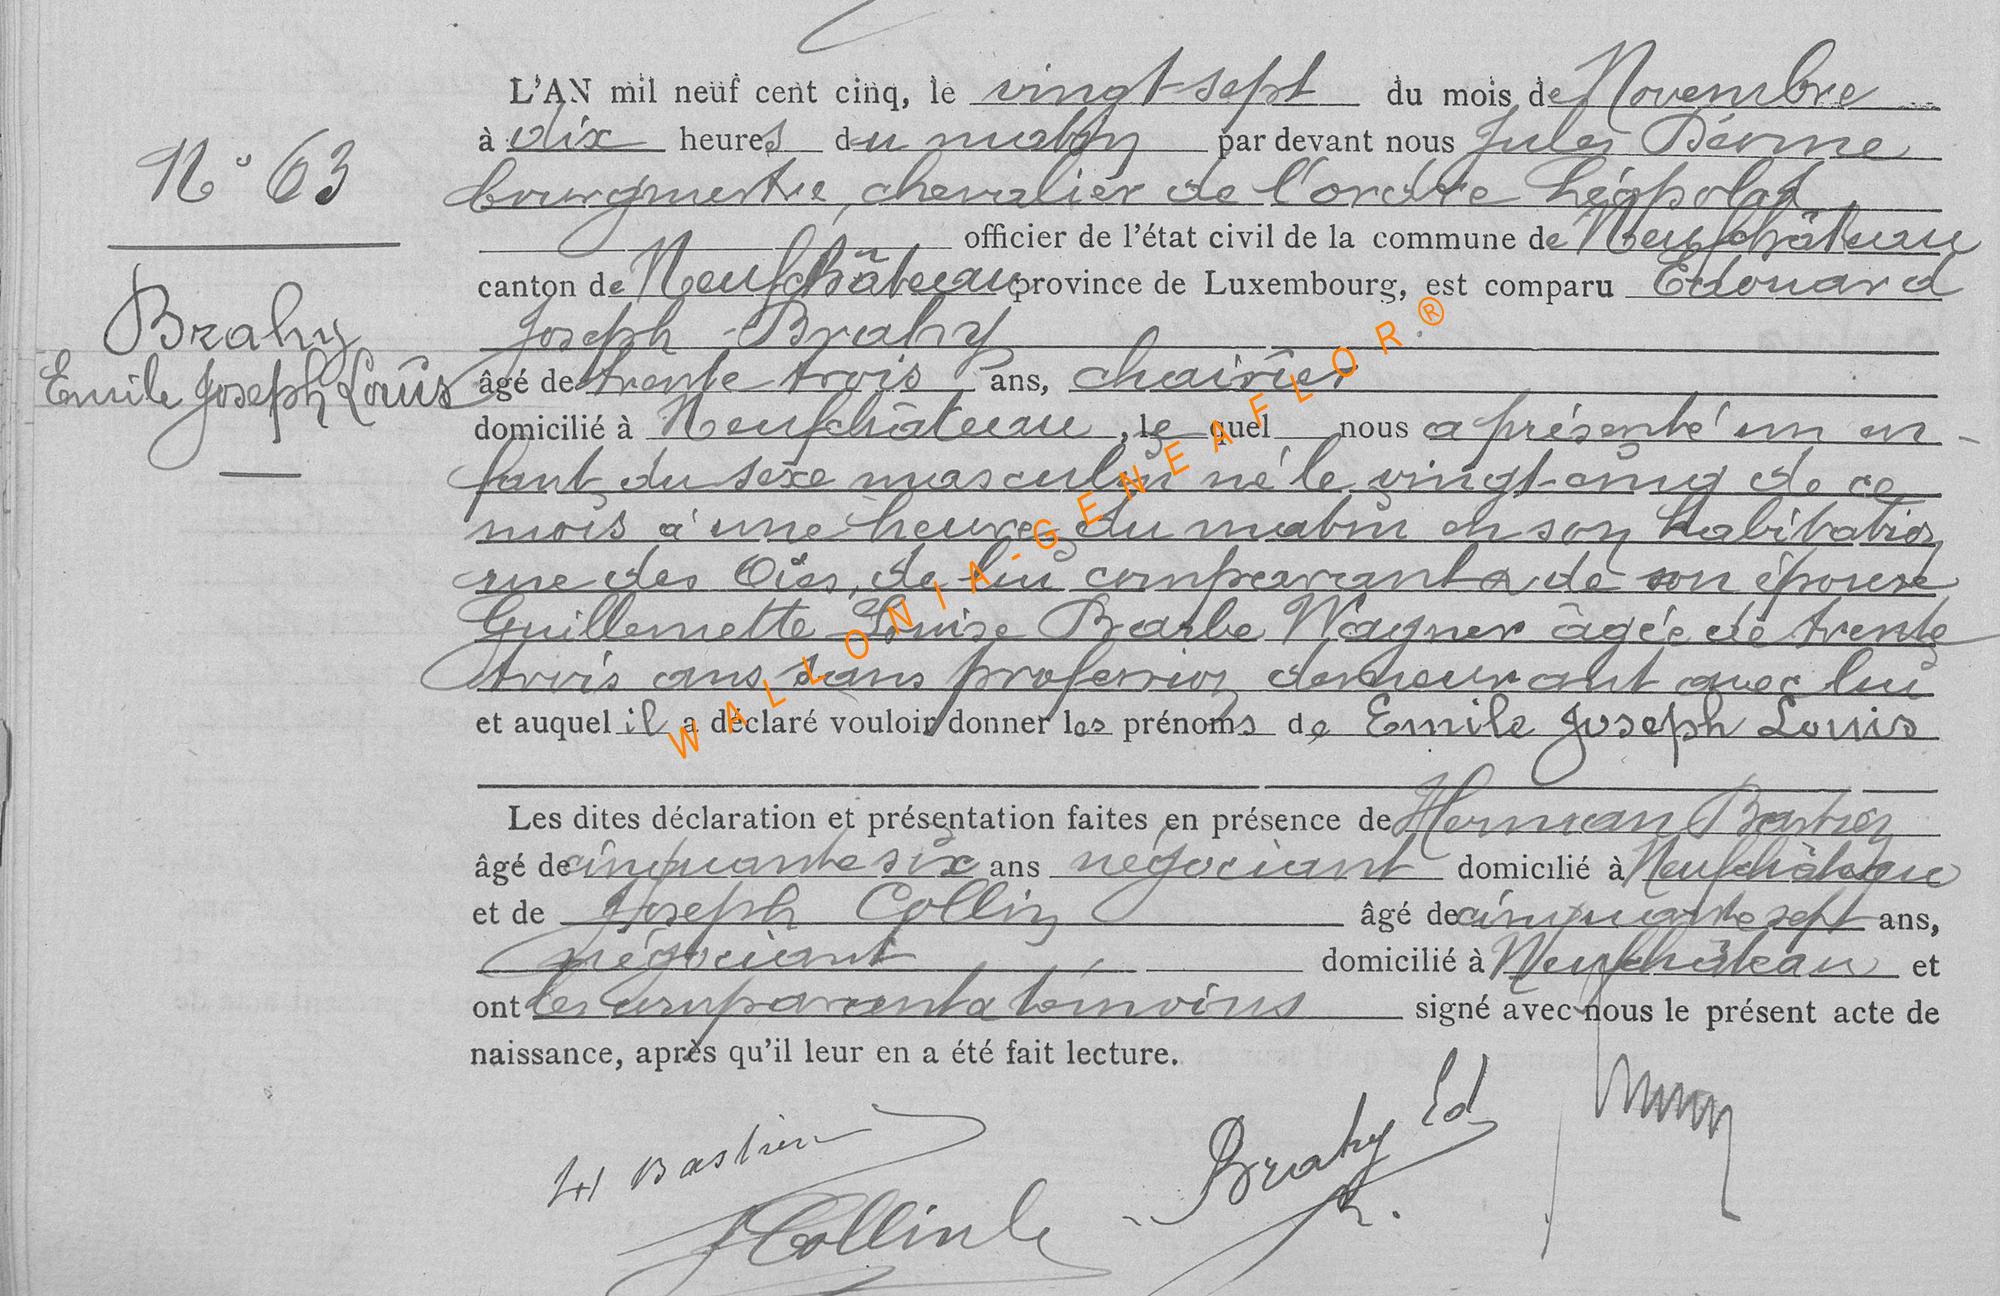 N° 63
Brahy
Emile Joseph Louis
L'AN mil neuf cent cinq, le vingt-sept du mois de Novembre
à dix heures du matin par devant nous Jules
bourgmestre, chevalier de l'ordre Léopold
officier de l'état civil de la commune de Neufchâteau
canton de Neufchâteau province de Luxembourg, est comparu Edouard
Joseph Brahy
âgé de trente trois ans,
domicilié à Neufchâteau, le quel nous a présenté un en-
fant du sexe masculin né le vingt-cinq de ce
mois à une heure du matin en son habitation
rue des Oies, de lui comparant & de son épouse
Guillemette Louise Barbe Wagner âgée de trente
trois ans sans profession demeurant avec lui
et auquel il a déclaré vouloir donner les prénoms de Emile Joseph Louis
Les dites déclaration et présentation faites en présence de Herman Bastien
âgé de cinquante six ans négociant domicilié à Neufchâteau
et de Joseph Collin âgé de cinquante sept ans,
négociant domicilié à Neufchâteau et
ont les comparant & témoins signé avec nous le présent acte de
naissance, après qu'il leur en a été fait lecture.
H Bastien
Brahy Ed
J Collin
WALLONIA-GENEAFLOR.®